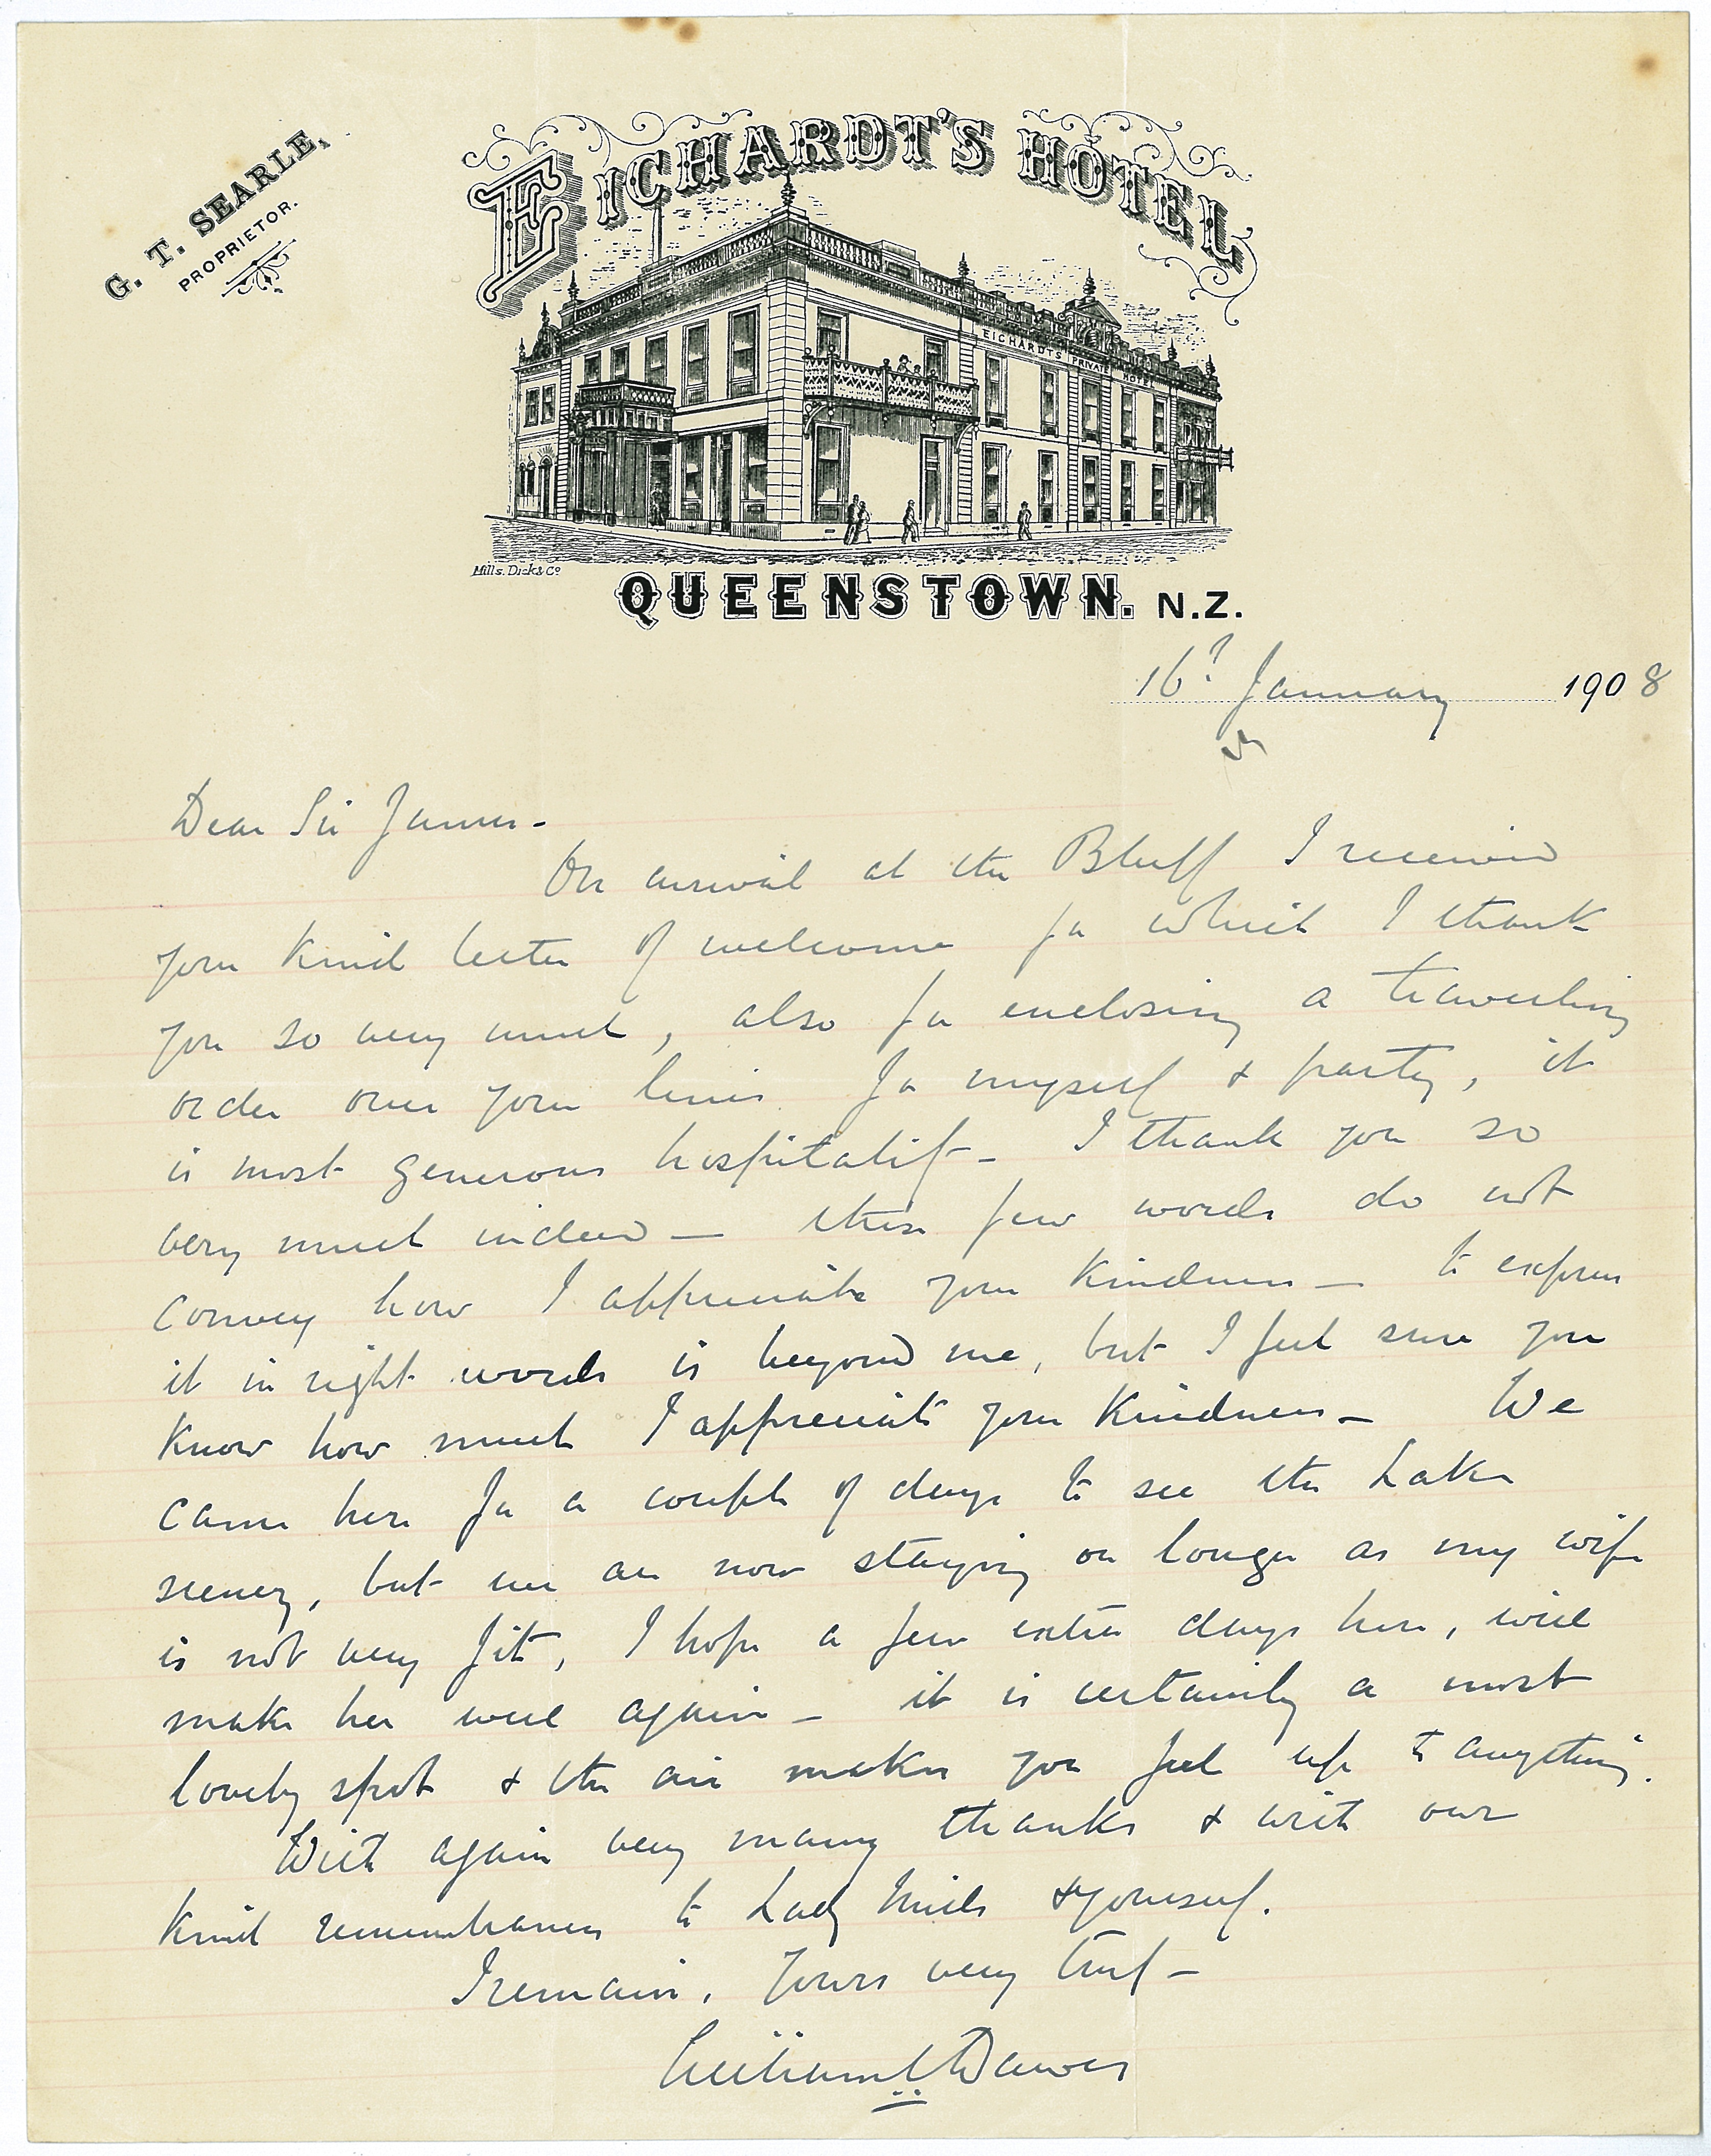 G. T. SEARLE,
PROPRIETOR.
EICHARDT'S HOTEL
EICHARDTS PRIVATE HOTEL
Mills. Dick & Co
QUEENSTOWN. N.Z.
16th January 1908
Dear Sir James -
On arrival at the Bluff I received
your kind letter of welcome for which I thank
you so very much, also for enclosing a travelling
order over your lines for myself & party, it
is most generous hospitality - I thank you so
very much indeed - these few words do not
convey how I appreciate your kindness - to express
it in right words is beyond me, but I feel sure you
know how much I appreciate your kindness - We
came here for a couple of days to see the Lake
scenery, but we are now staying on longer as my wife
is not very fit, I hope a few extra days here, will
make her well again - it is certainly a most
lovely spot & the air makes you feel up to anything.
With again very many thanks & with our
kind remembrances to Lady Mills & yourself.
I remain, Yours very truly -
William Dawes